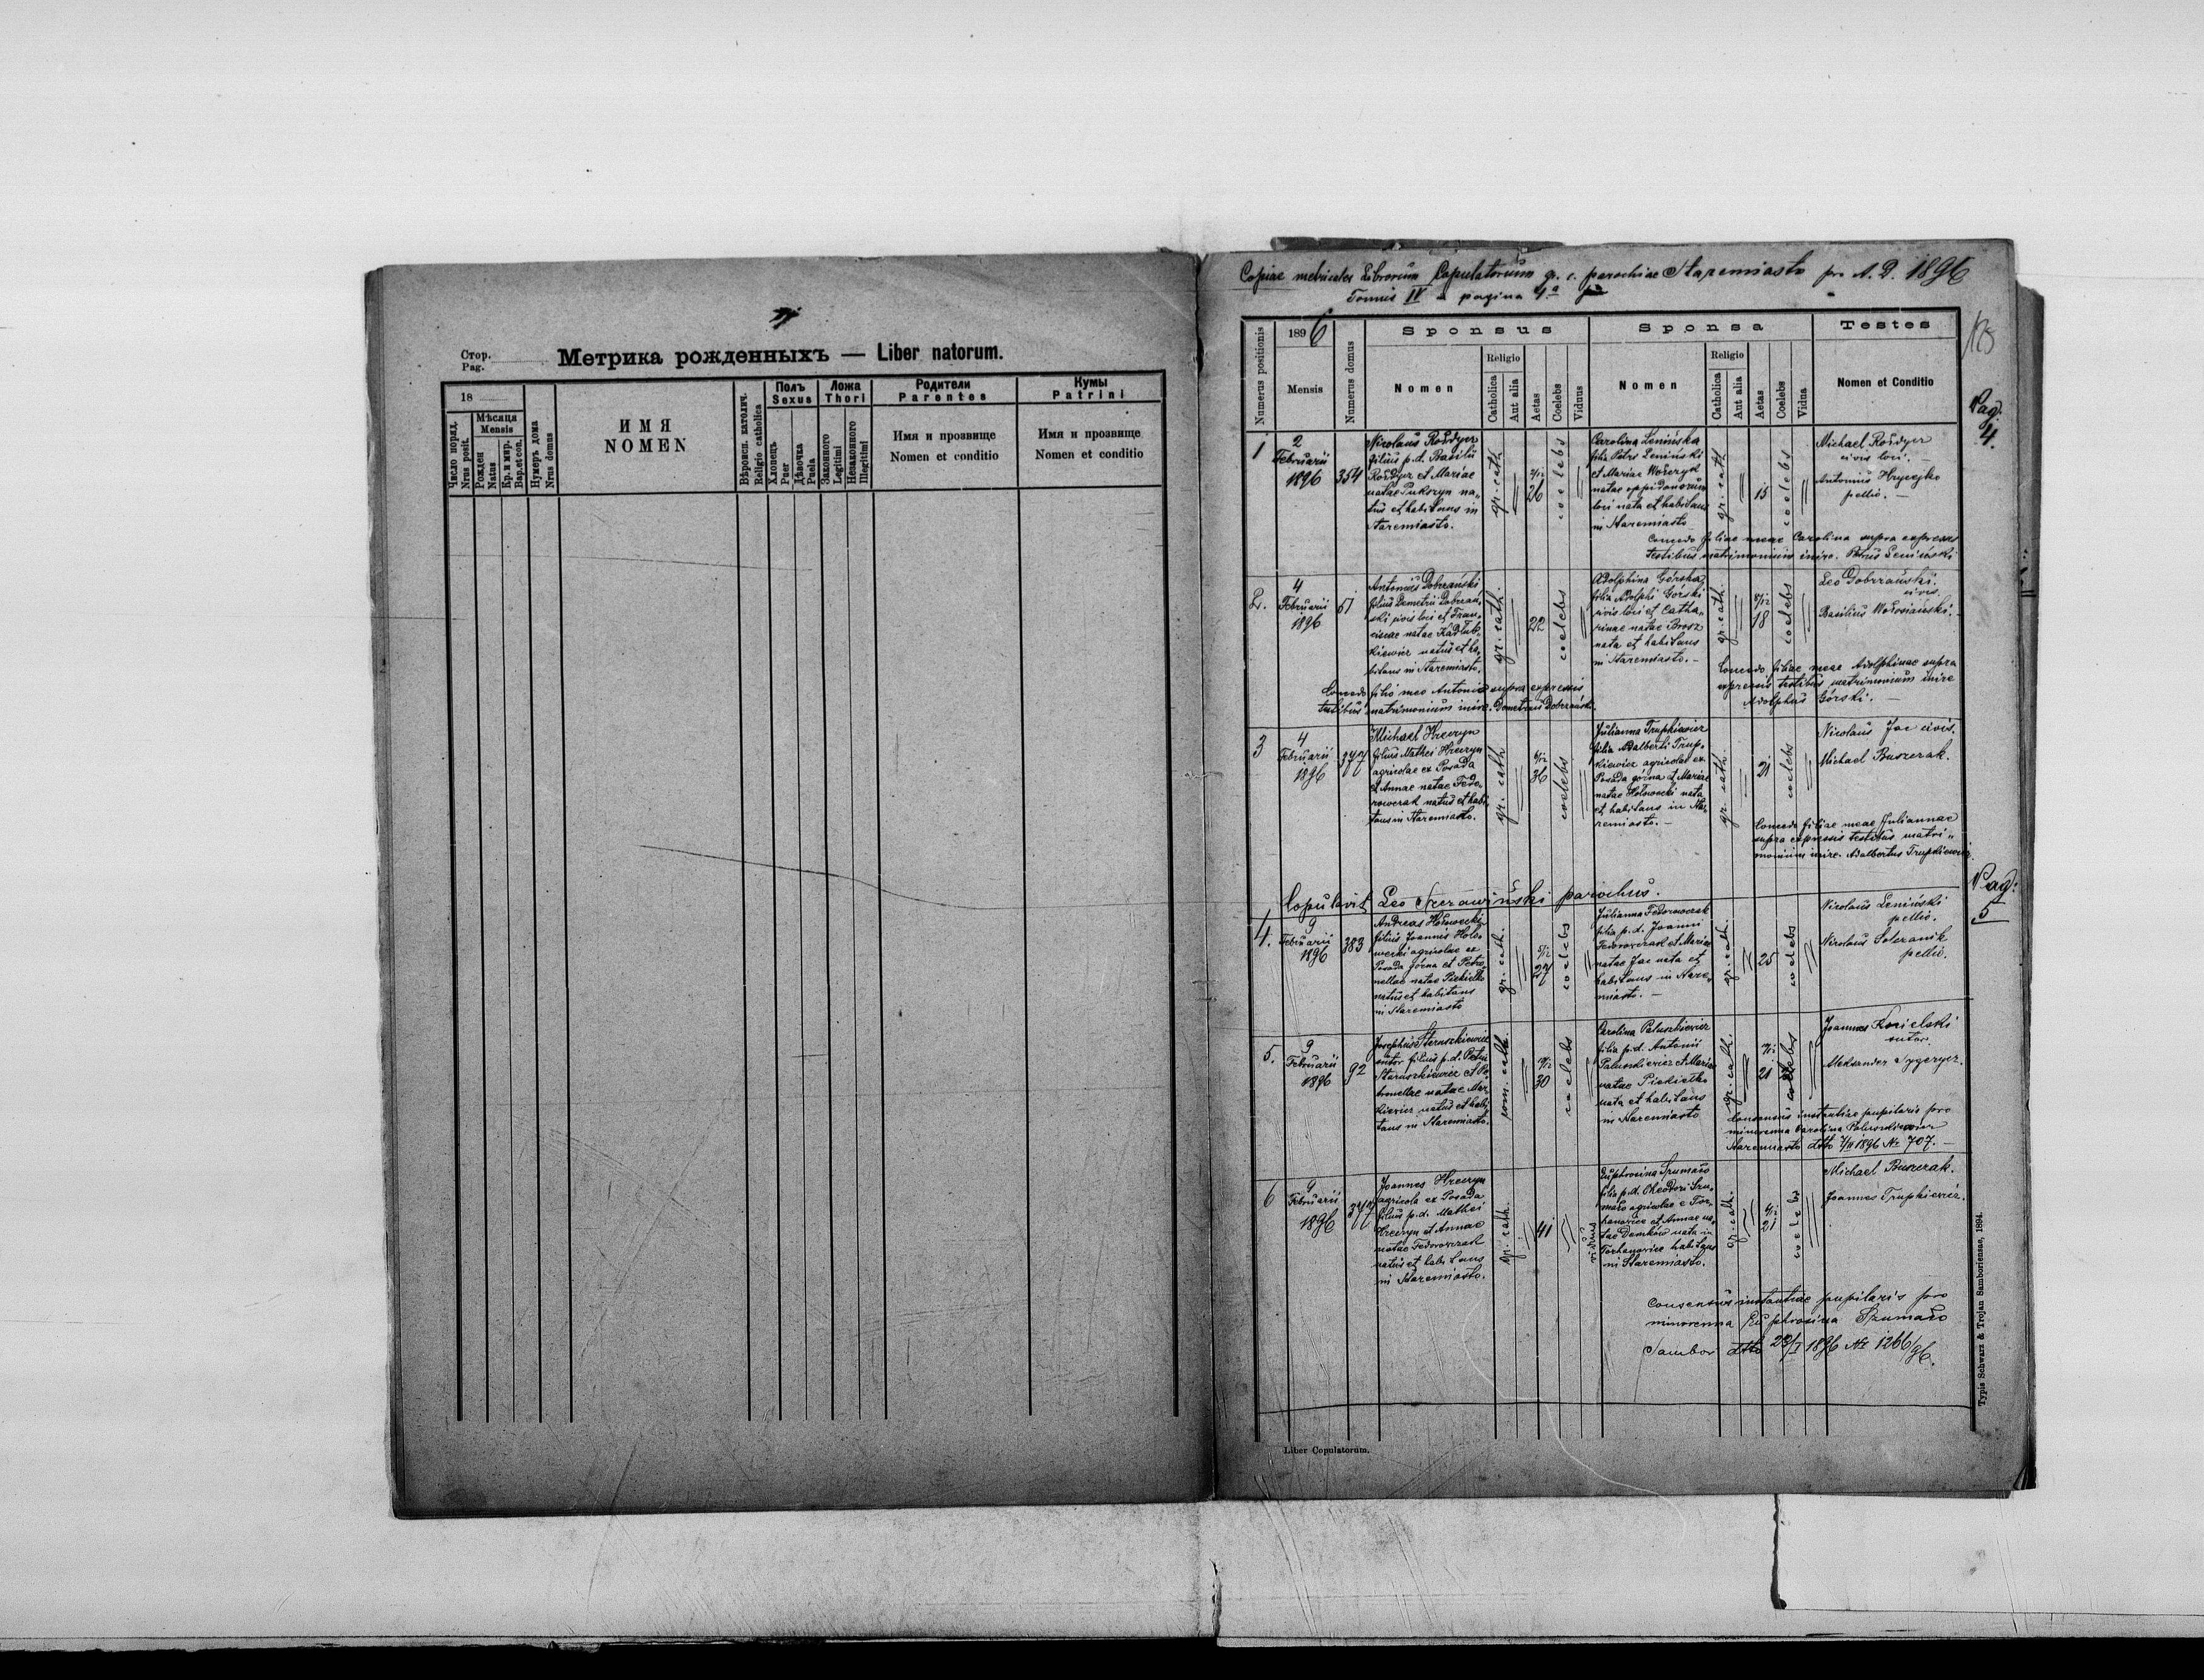 Стор.
Pag.
Метрика рожденныхъ — Liber natorum.
18
Число поряд.
Nrus posit.
Мѣсяца
Mensis
Рожден
Natus
Кр. и мир.
Bap. et con.
Нумеръ дома
Nrus domus
ИМЯ
NOMEN
Вѣроисп. католич.
Religio catholica
Полъ
Sexus
Хлопецъ
Puer
Дѣвочка
Puela
Ложа
Thori
Законного
Legitimi
Незаконного
Illegitimi
Родители
Parentes
Имя и прозвище
Nomen et conditio
Кумы
Patrini
Имя и прозвище
Nomen et conditio
Copiae metricales Librorum Copulatorum gr. c. parochiae Staremiasto pro A. D. 1896
Tomus IV a pagina 4a
Numerus positionis
1896
Mensis
Numerus domus
Sponsus
Nomen
Religio
Catholica
Aut alia
Aetas
Coelebs
Viduus
Sponsa
Nomen
Religio
Catholica
Aut alia
Aetas
Coelebs
Vidua
Testes
Nomen et Conditio
Pag.
4.
1
2
Februarii
1896
354
Nicolaus
filius p.d. Basilii
et Mariae
natae Pukszyn na„
tus et habitans in
Staremiasto.
gr. cath
26
coelebs
Carolina Lenińska
filia Petri Leniński
et Mariae
natae oppidanorum
loci nata et habitans
in Staremiasto
gr. cath
15
coelebs
Michael
civis loci. —
Antonius Hrycejko
pellio. —
Concedo filiae meae Carolina supra expressis
testibus matrimonium inire. Petrus Leniński
2.
4
Februarii
1896
51
Antonius Dobrzański
filius Demetrii Dobrzań„
ski civis loci et Fran„
ciscae natae Kadłub„
kiewicz natus et ha„
bitans in Staremiasto.
gr. cath.
22
coelebs
Adolphina Górska
filia Adolphi Górski
civis loci et Catha„
rinae natae Brosz
nata et habitans
in Staremiasto. —
gr. cath.
8/12
18
coelebs
Leo Dobrzański.
civis.
Basilius Wołosiański. —
Concedo filiae meae Adolphinae supra
expressis testibus matrimonium inire
Adolphus Górski. —
Concedo filio meo Antonio supra expressis
testibus matrimonium inire. Demetrius Dobrzański.
3
4
Februarii
1896
377
Michael Hrecyn
filius Mathei Hrecyn
agricolae ex Posada
et Annae natae Fedo„
rowczak natus et habi„
tans in Staremiasto.
gr. cath
6/12
36
coelebs
Julianna Trupkiewicz
filia Adalberti Trup„
kiewicz agricolae ex
Posada górna et Mariae
natae Hołowecki nata
et habitans in Sta„
remiasto. —
gr. cath.
21
coelebs
Nicolaus Jac civis.
Michael Buszczak.
Concedo filiae meae Juliannae
supra expressis testibus matri„
monium inire. Adalbertus Trupkiewicz
Copulavit Leo parochus.
Pag:
5
4.
9
Februarii
1896
383
Andreas Hołowecki
filius Joannis Hoło„
wecki agricolae ex
Posada górna et Petro„
nellae natae Piekiełko
natus et habitans
in Staremiasto
gr. cath.
5/12
27
coelebs
Julianna Fedorowczak
filia p.d. Joannis
Fedorowczak et Mariae
natae Jac nata et
habitans in Stare„
miasto. —
gr. cath.
25
coelebs
Nicolaus Leniński
pellio.
Nicolaus Solczanik
pellio.
5.
9
Februarii
1896
92
Josephus Staruszkiewicz
sutor filius p.d. Petri
Staruszkiewicz et Pe„
tronellae natae Mar„
kiewicz natus et habi„
tans in Staremiasto.
rom. cath.
30
coelebs
Carolina Paluszkiewicz
filia p.d. Antonii
Paluszkiewicz et Mariae
natae Piekiełko
nata et habitans
in Staremiasto
gr. cath.
21
coelebs
Joannes Kozielski
sutor.
Aleksander
Consensus instantiae pupilaris pro
minorenna Carolina Paluszkiewicz
Staremiasto dtto 1896 Nr 707. —
6
9
Februarii
1896
377
Joannes Hrecyn
agricola ex Posada
filius p.d. Mathei
Hrecyn et Annae
natae Fedorowczak
natus et habitans
in Staremiasto.
gr. cath.
41
viduus
Euphrosina Szumało
filia p.d. Theodori Szu„
mało agricolae e Tor„
hanowice et Annae na„
tae Demków nata in
Torhanowice habitans
in Staremiasto.
gr. cath.
21
coelebs
Michael Buszczak.
Joannes Trupkiewicz.
Consensus instantiae pupilaris pro
minorenna Euphrosina Szumało
Sambor dtto 23/I 1896 Nr 1266/96.
Liber Copulatorum.
Typis Schwarz & Trojan Samboriensae, 1894.